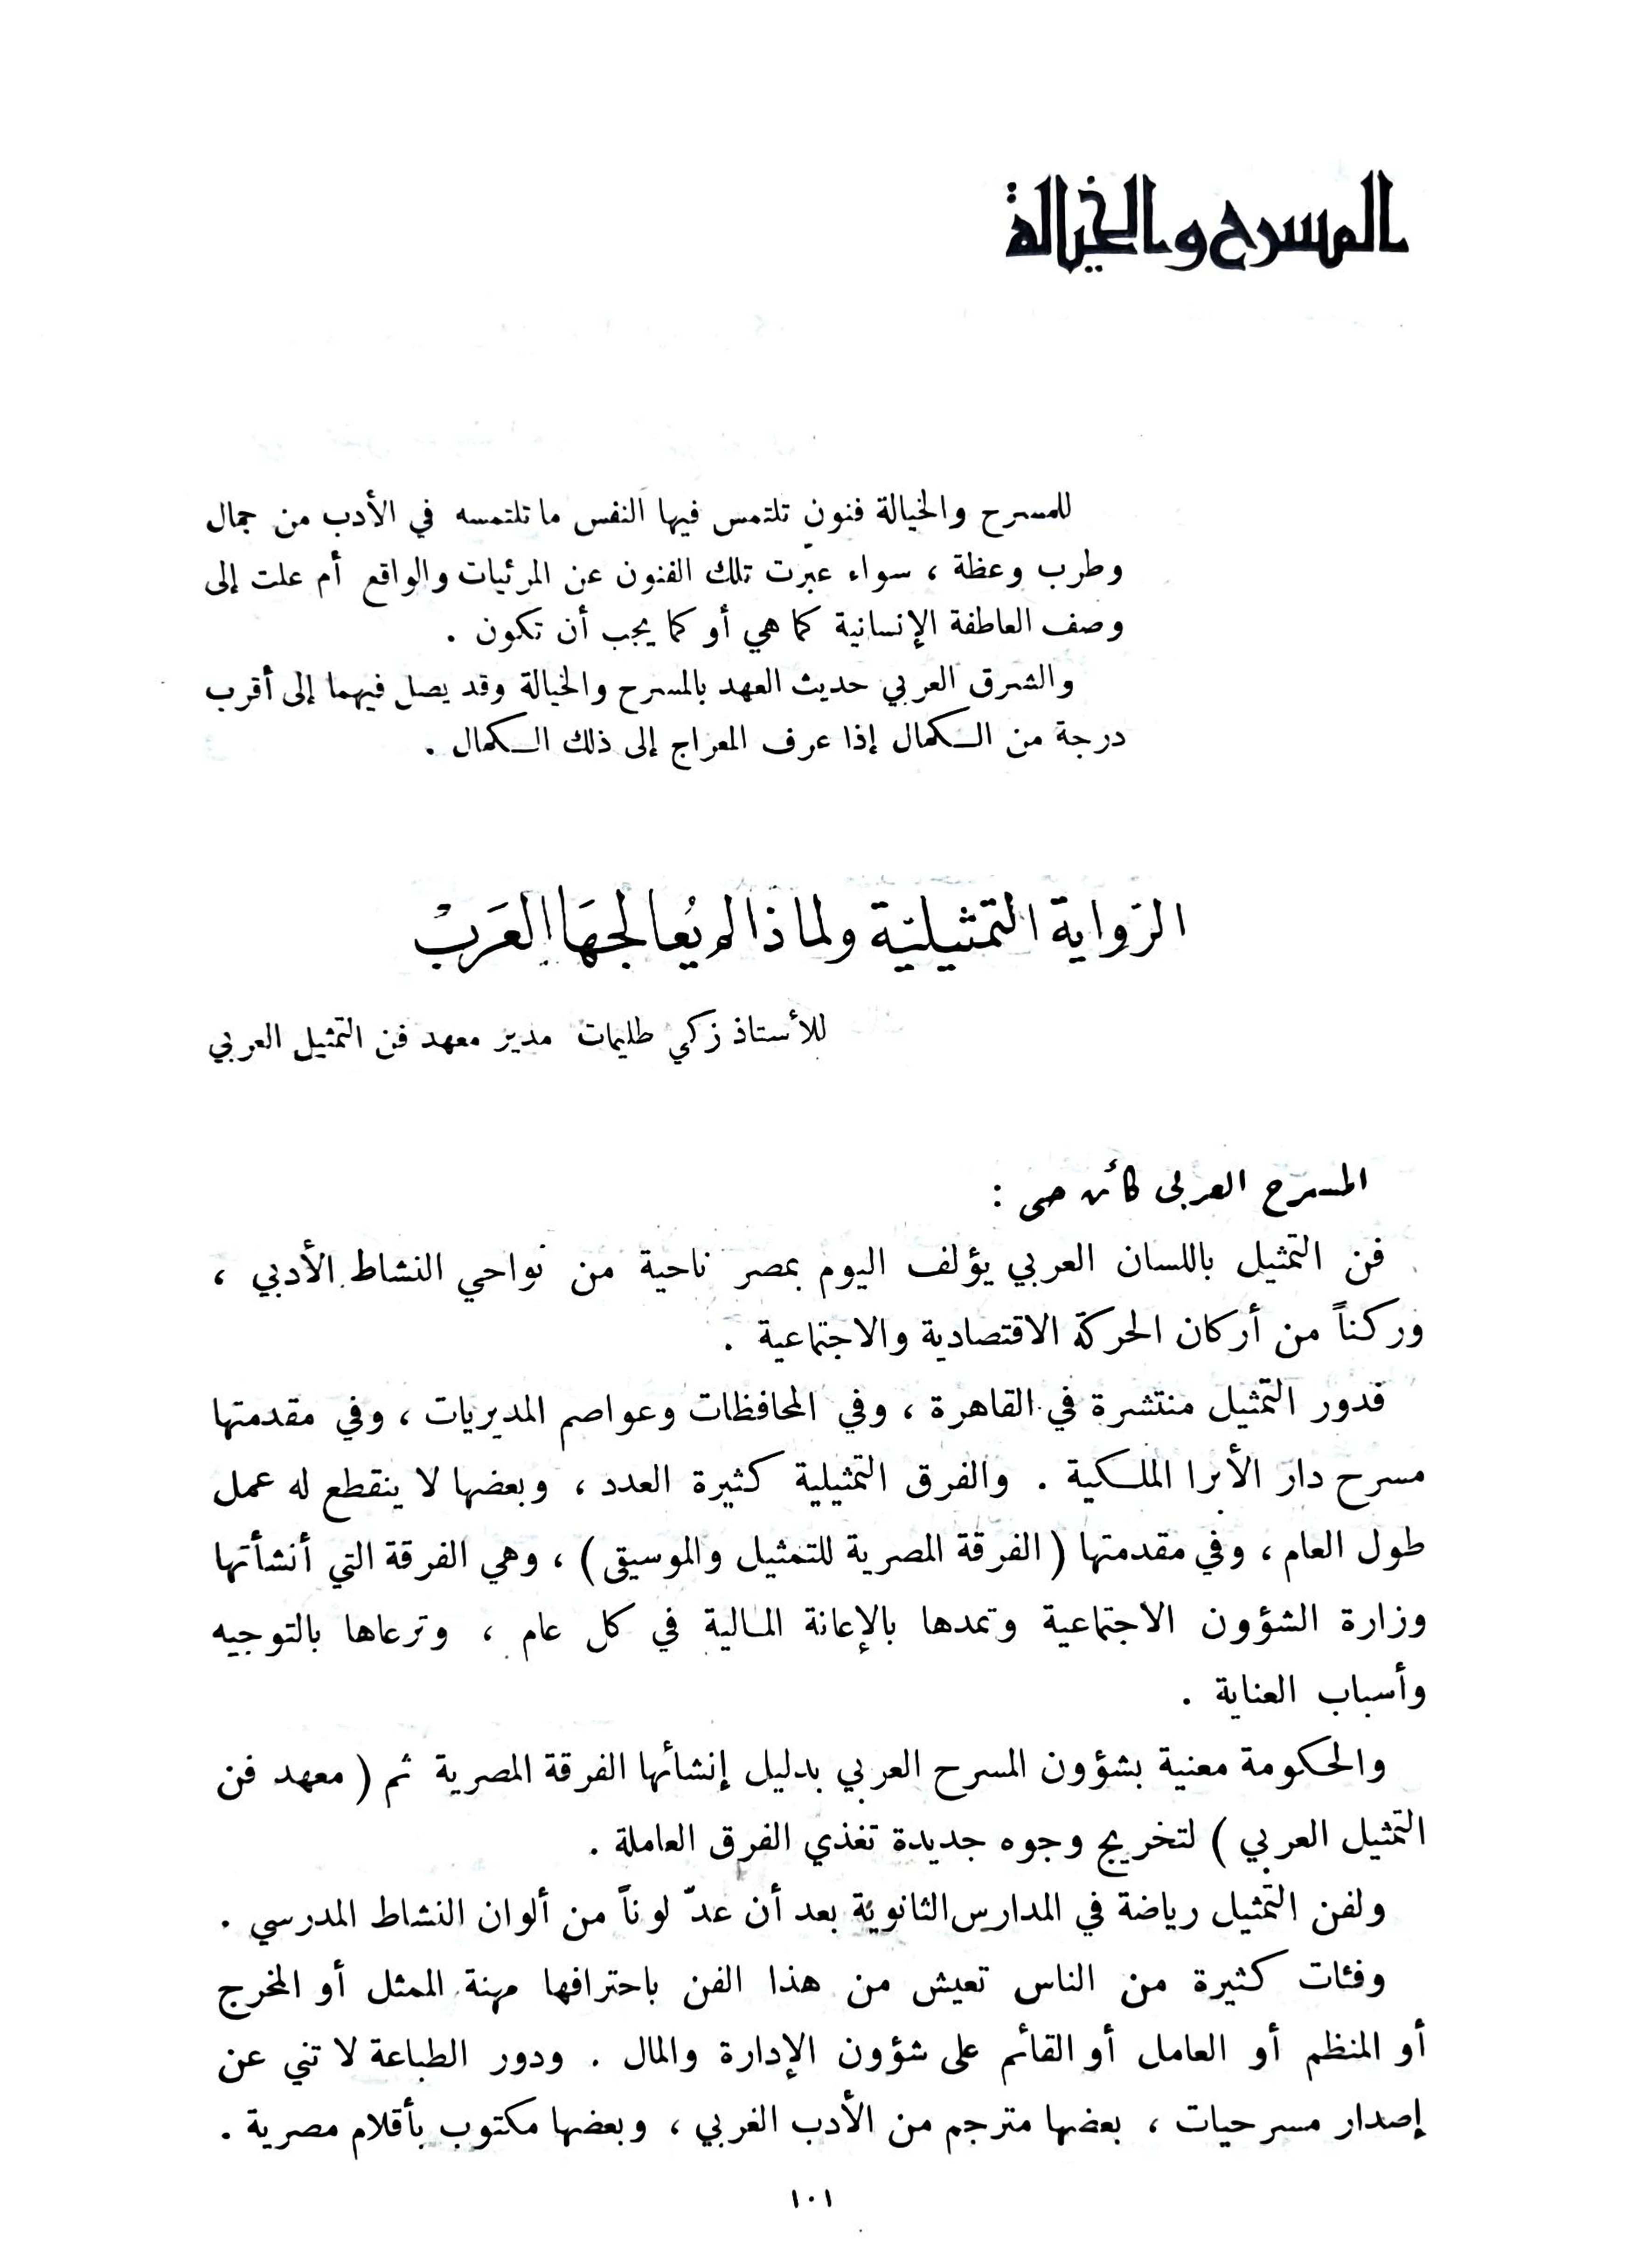 المسرح والخيالة
للمسرح والخيالة فنون تلتمس فيها النفس ما تلتمسه في الأدب من جمال
وطرب وعظة ، سواء عبرت تلك الفنون عن المرئيات والواقع أم علت إلى
وصف العاطفة الإنسانية كما هي أو كما يجب أن تكون .
والشرق العربي حديث العهد بالمسرح والخيالة وقد يصل فيهما إلى أقرب
درجة من الكمال إذا عرف المعراج إلى ذلك الكمال .
الرواية التمثيلية ولماذا لم يعالجها العرب
للأستاذ زكي طليمات مدير معهد فن التمثيل العربي
المسرح العربى كائن حى :
فن التمثيل باللسان العربي يؤلف اليوم بمصر ناحية من نواحي النشاط الأدبي ،
وركناً من أركان الحركة الاقتصادية والاجتماعية .
فدور التمثيل منتشرة في القاهرة ، وفي المحافظات وعواصم المديريات ، وفي مقدمتها
مسرح دار الأبرا الملكية . والفرق التمثيلية كثيرة العدد ، وبعضها لا ينقطع له عمل
طول العام ، وفي مقدمتها ( الفرقة المصرية للتمثيل والموسيقى ) ، وهي الفرقة التي أنشأتها
وزارة الشؤون الاجتماعية وتمدها بالإعانة المالية في كل عام ، وترعاها بالتوجيه
وأسباب العناية .
والحكومة معنية بشؤون المسرح العربي بدليل إنشائها الفرقة المصرية ثم ( معهد فن
التمثيل العربي ) لتخريج وجوه جديدة تغذي الفرق العاملة .
ولفن التمثيل رياضة في المدارس الثانوية بعد أن عدّ لوناً من ألوان النشاط المدرسي .
وفئات كثيرة من الناس تعيش من هذا الفن باحترافها مهنة الممثل أو المخرج
أو المنظم أو العامل أو القائم على شؤون الإدارة والمال . ودور الطباعة لا تني عن
إصدار مسرحيات ، بعضها مترجم من الأدب الغربي ، وبعضها مكتوب بأقلام مصرية .
١٠١